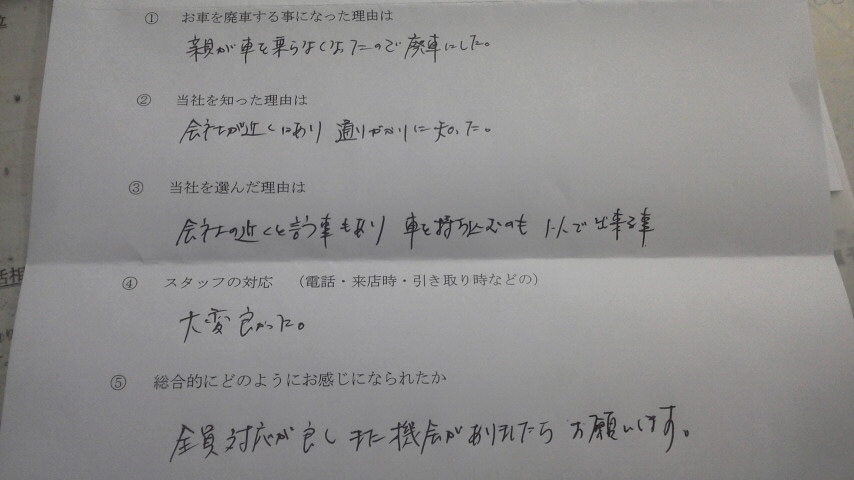 ① お車を廃車する事になった理由は
親が車を乗らなくなったので廃車にした。
② 当社を知った理由は
会社が近くにあり 通りがかりに知った。
③ 当社を選んだ理由は
会社の近くと言う事もあり 車を持ち込むのも 1人で出来る事
④ スタッフの対応 （電話・来店時・引き取り時などの）
大変良かった。
⑤ 総合的にどのようにお感じになられたか
全員対応が良く また機会がありましたら お願いします。